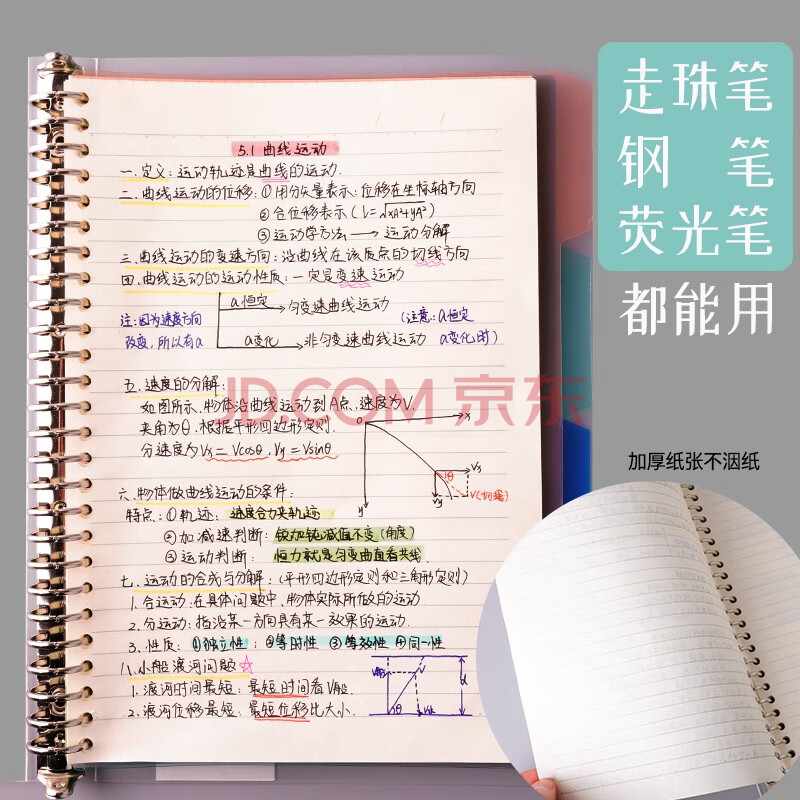 5.1 曲线运动
一.定义:运动轨迹是曲线的运动.
二.曲线运动的位移:①用分矢量表示:位移在坐标轴方向
②合位移表示(l=√xA²+yA²)
③运动学方法→运动分解
三.曲线运动的变速方向:沿曲线在该质点的切线方向
四.曲线运动的运动性质:一定是变速运动
a恒定 匀变速曲线运动 (注意:a恒定
注:因为速度方向
改变,所以有a a变化 非匀变速曲线运动 a变化时)
五.速度的分解:
如图所示,物体沿曲线运动到A点,速度为V.
夹角为θ,根据平形四边形定则.
分速度为Vx=Vcosθ.Vy=Vsinθ
O x
Vx
θ
y Vy V(切线)
六.物体做曲线运动的条件:
特点:①轨迹:速度合力夹轨迹
②加减速判断:锐加钝减值不变(角度)
③运动判断:恒力就是匀变曲直看共线
七.运动的合成与分解:(平形四边形定则和三角形定则)
1.合运动:在具体问题中,物体实际所做的运动
2.分运动:指沿某一方向具有某一效果的运动.
3.性质:①独立性:②等时性 ③等效性 ④同一性
八.小船渡河问题☆
1.渡河时间最短:最短时间看V船.
2.渡河位移最短:最短位移比大小.
V船 V d
θ V水
JD.COM 京东
走珠笔
钢 笔
荧光笔
都能用
加厚纸张不洇纸